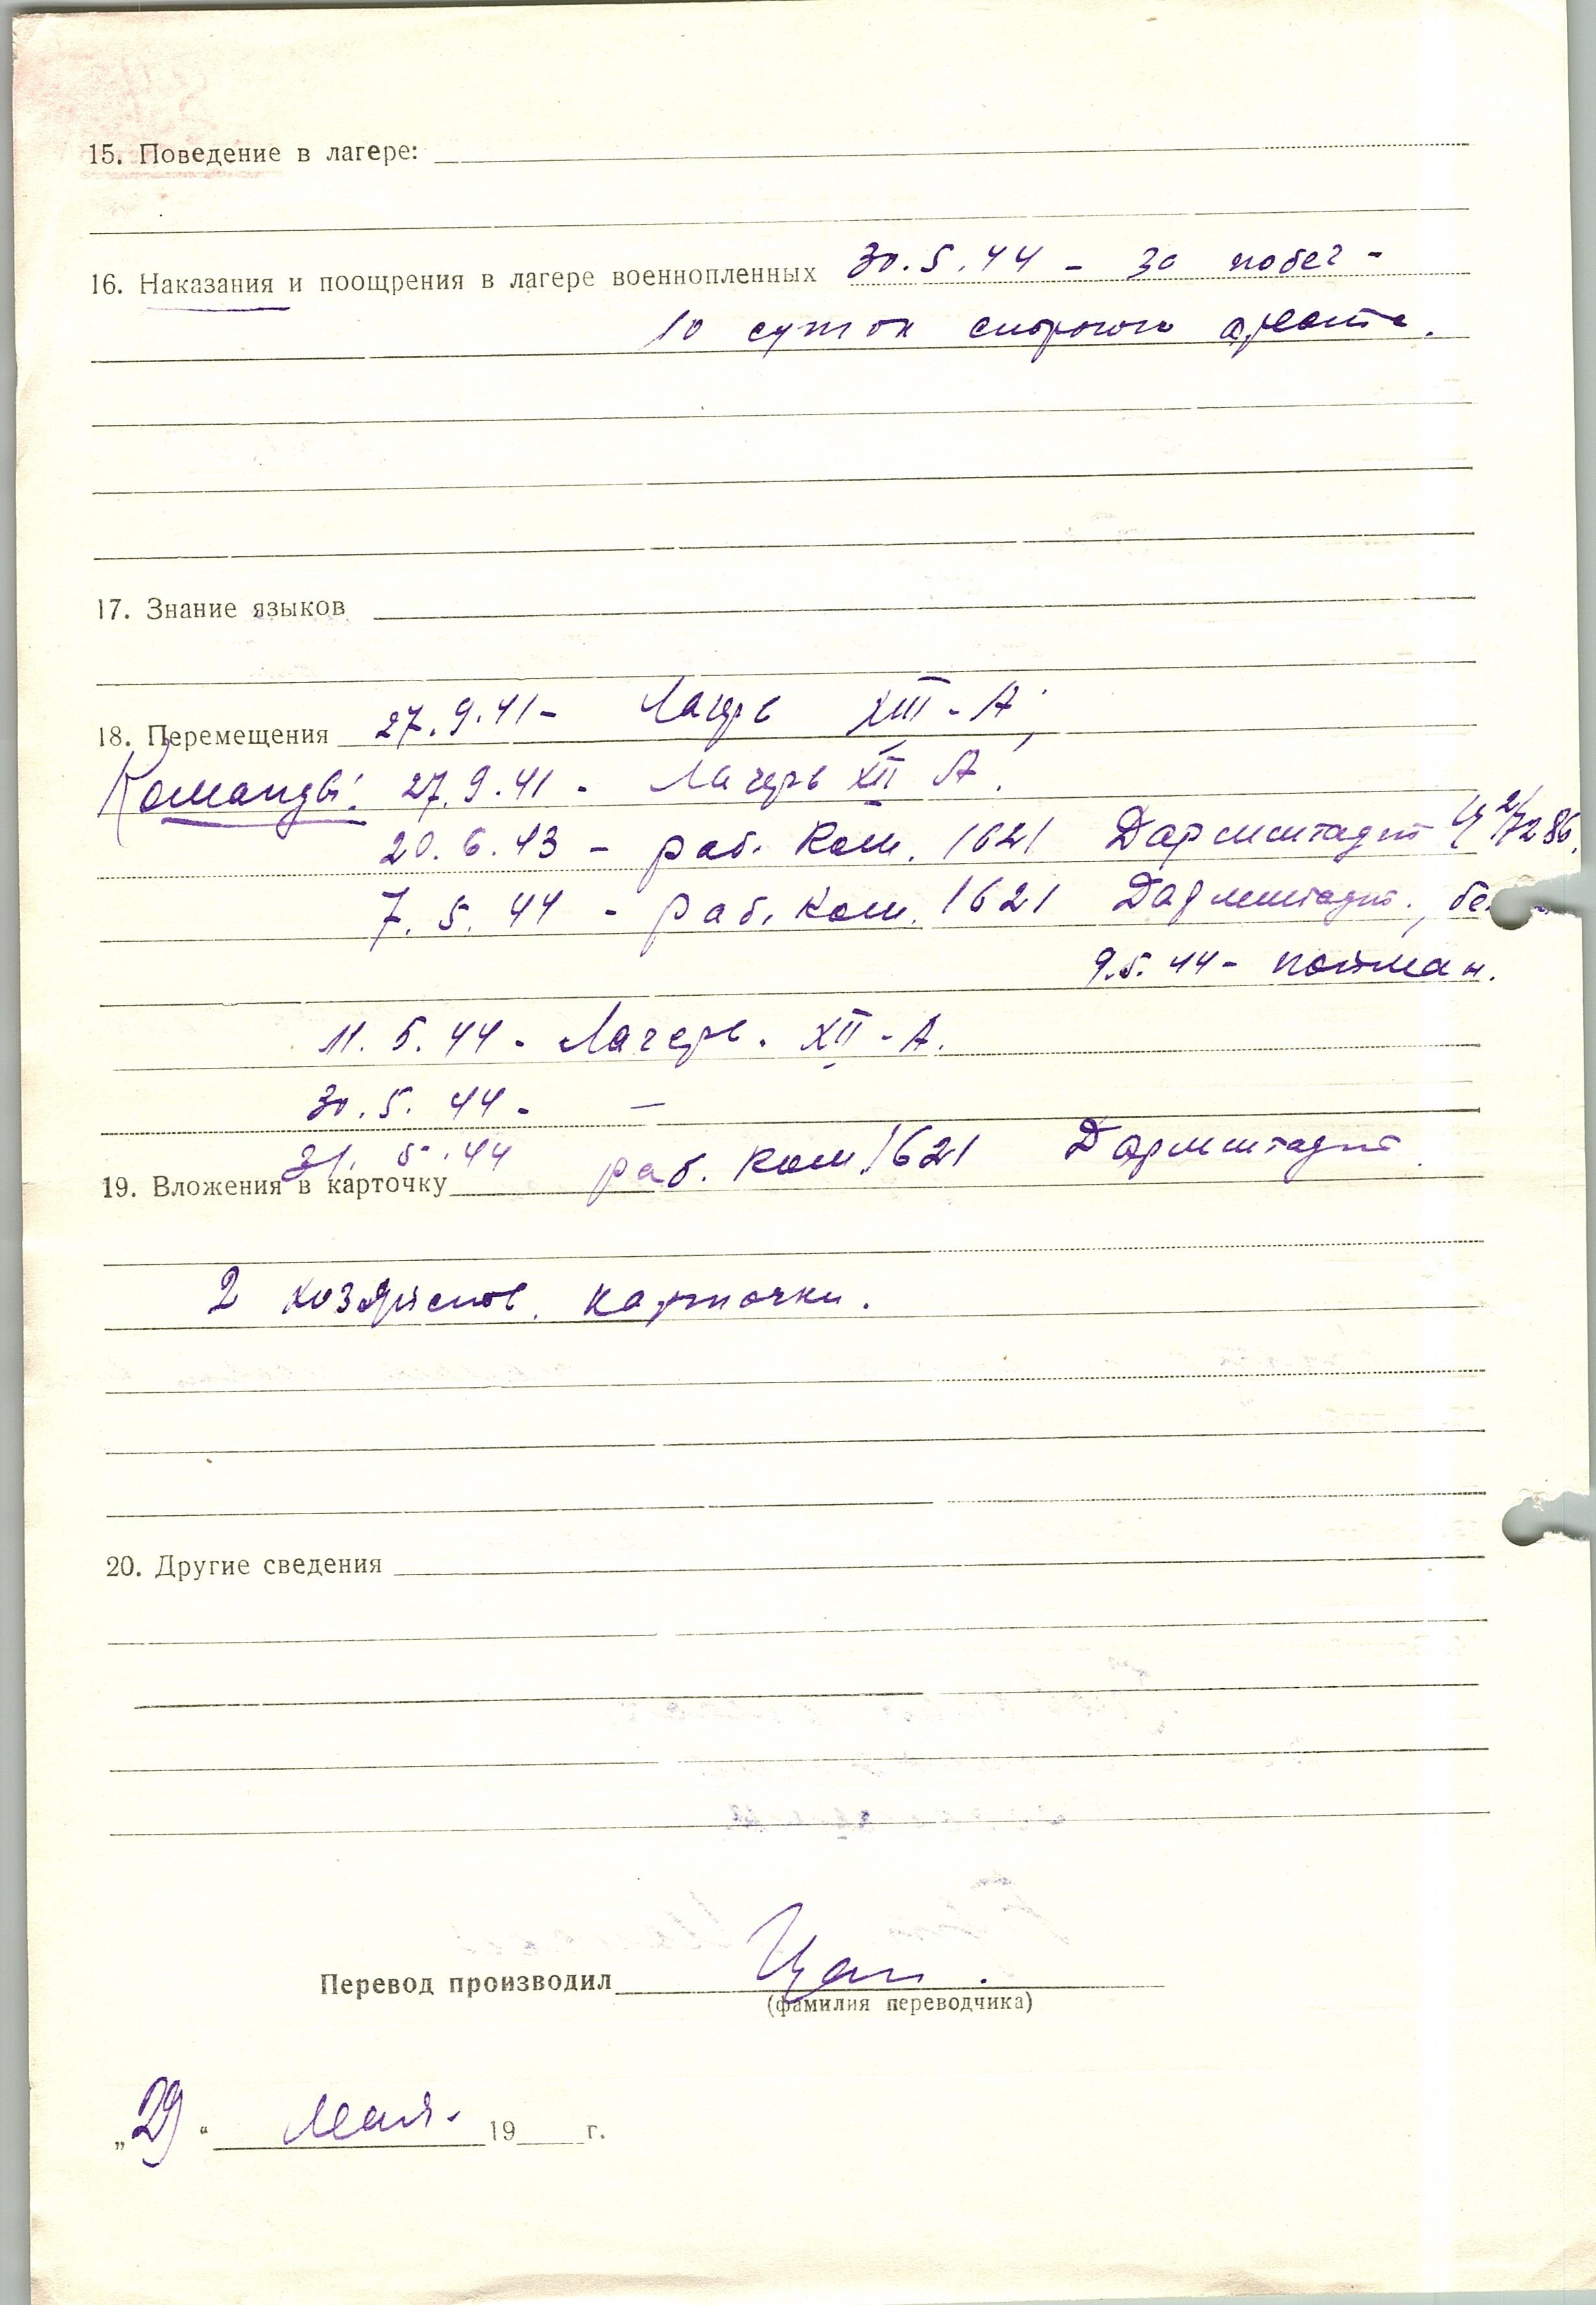 15. Поведение в лагере:
16. Наказания и поощрения в лагере военнопленных 30.5.44 - за побег -
10 суток строгого ареста.
17. Знание языков
18. Перемещения 27.9.41 - Лагерь XIII - А;
Команды: 27.9.41 - Лагерь XII А.
20.6.43 - раб. ком. 1621 Дармштадт
7.5.44 - раб. ком. 1621 Дармштадт,
9.5.44 - пойман.
11.5.44 - Лагерь. XII - А.
30.5.44 - —
31.5.44 раб. ком 1621 Дармштадт.
19. Вложения в карточку
2 хозяйств. карточки.
20. Другие сведения
Перевод производил
(фамилия переводчика)
„29“ мая. 19 г.